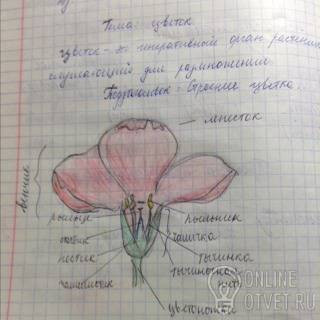 Тема: цветок
Цветок - это генеративный орган растения
служающий для размножения
Подзаголовок: Строение цветка.
лепесток
венчик
рыльце
пыльник
столбик
чашечка
пестик
тычинка
тычиночная
нить
чашелистик
цветоножка
ONLINE
OTVET.RU